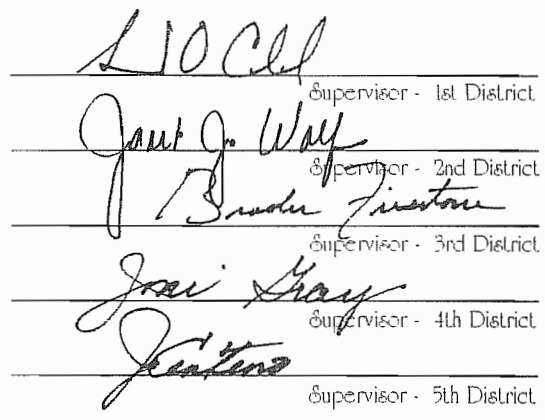 Supervisor - 1st District
Janet J. Wolf
Supervisor - 2nd District
Brooks Firestone
Supervisor - 3rd District
Joni Gray
Supervisor - 4th District
J Centeno
Supervisor - 5th District